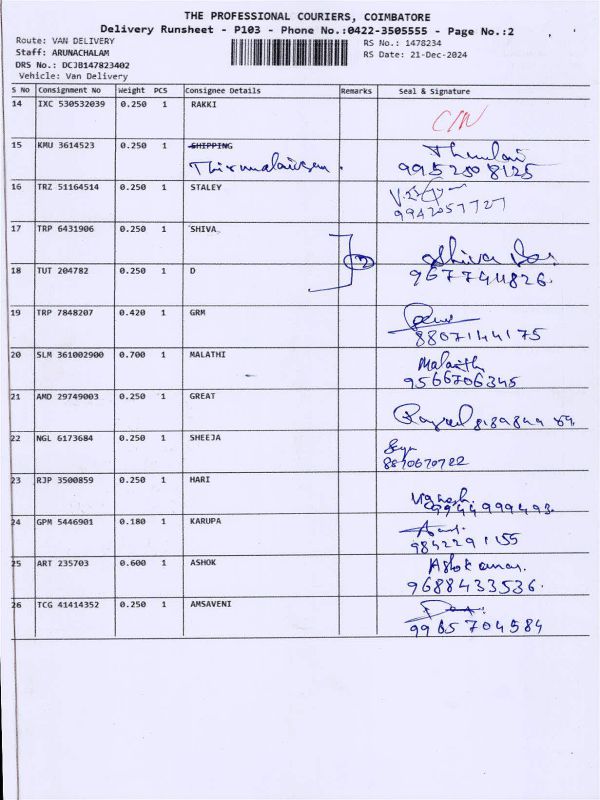 THE PROFESSIONAL COURIERS, COIMBATORE
Delivery Runsheet - P103 - Phone No.:0422-3505555 - Page No.:2
Route: VAN DELIVERY RS No.: 1478234
Staff: ARUNACHALAM RS Date: 21-Dec-2024
DRS No.: DCJB147823402
Vehicle: Van Delivery
S No Consignment No Weight PCS Consignee Details Remarks Seal & Signature
14 IXC 530532039 0.250 1 RAKKI
15 KMU 3614523 0.250 1 SHIPPING
9952508125
16 TRZ 51164514 0.250 1 STALEY
9942057727
17 TRP 6431906 0.250 1 SHIVA
2 Shiva
18 TUT 204782 0.250 1 D
9677944826.
19 TRP 7848207 0.420 1 GRM
8807144175
20 SLM 361002900 0.700 1 MALATHI Malathi
9566706345
21 AMD 29749003 0.250 1 GREAT
22 NGL 6173684 0.250 1 SHEEJA
8870670722
23 RJP 3500859 0.250 1 HARI Vignesh.
9944999493.
24 GPM 5446901 0.180 1 KARUPA
9842291155
25 ART 235703 0.600 1 ASHOK Ashok
9688433536.
26 TCG 41414352 0.250 1 AMSAVENI
9965704584